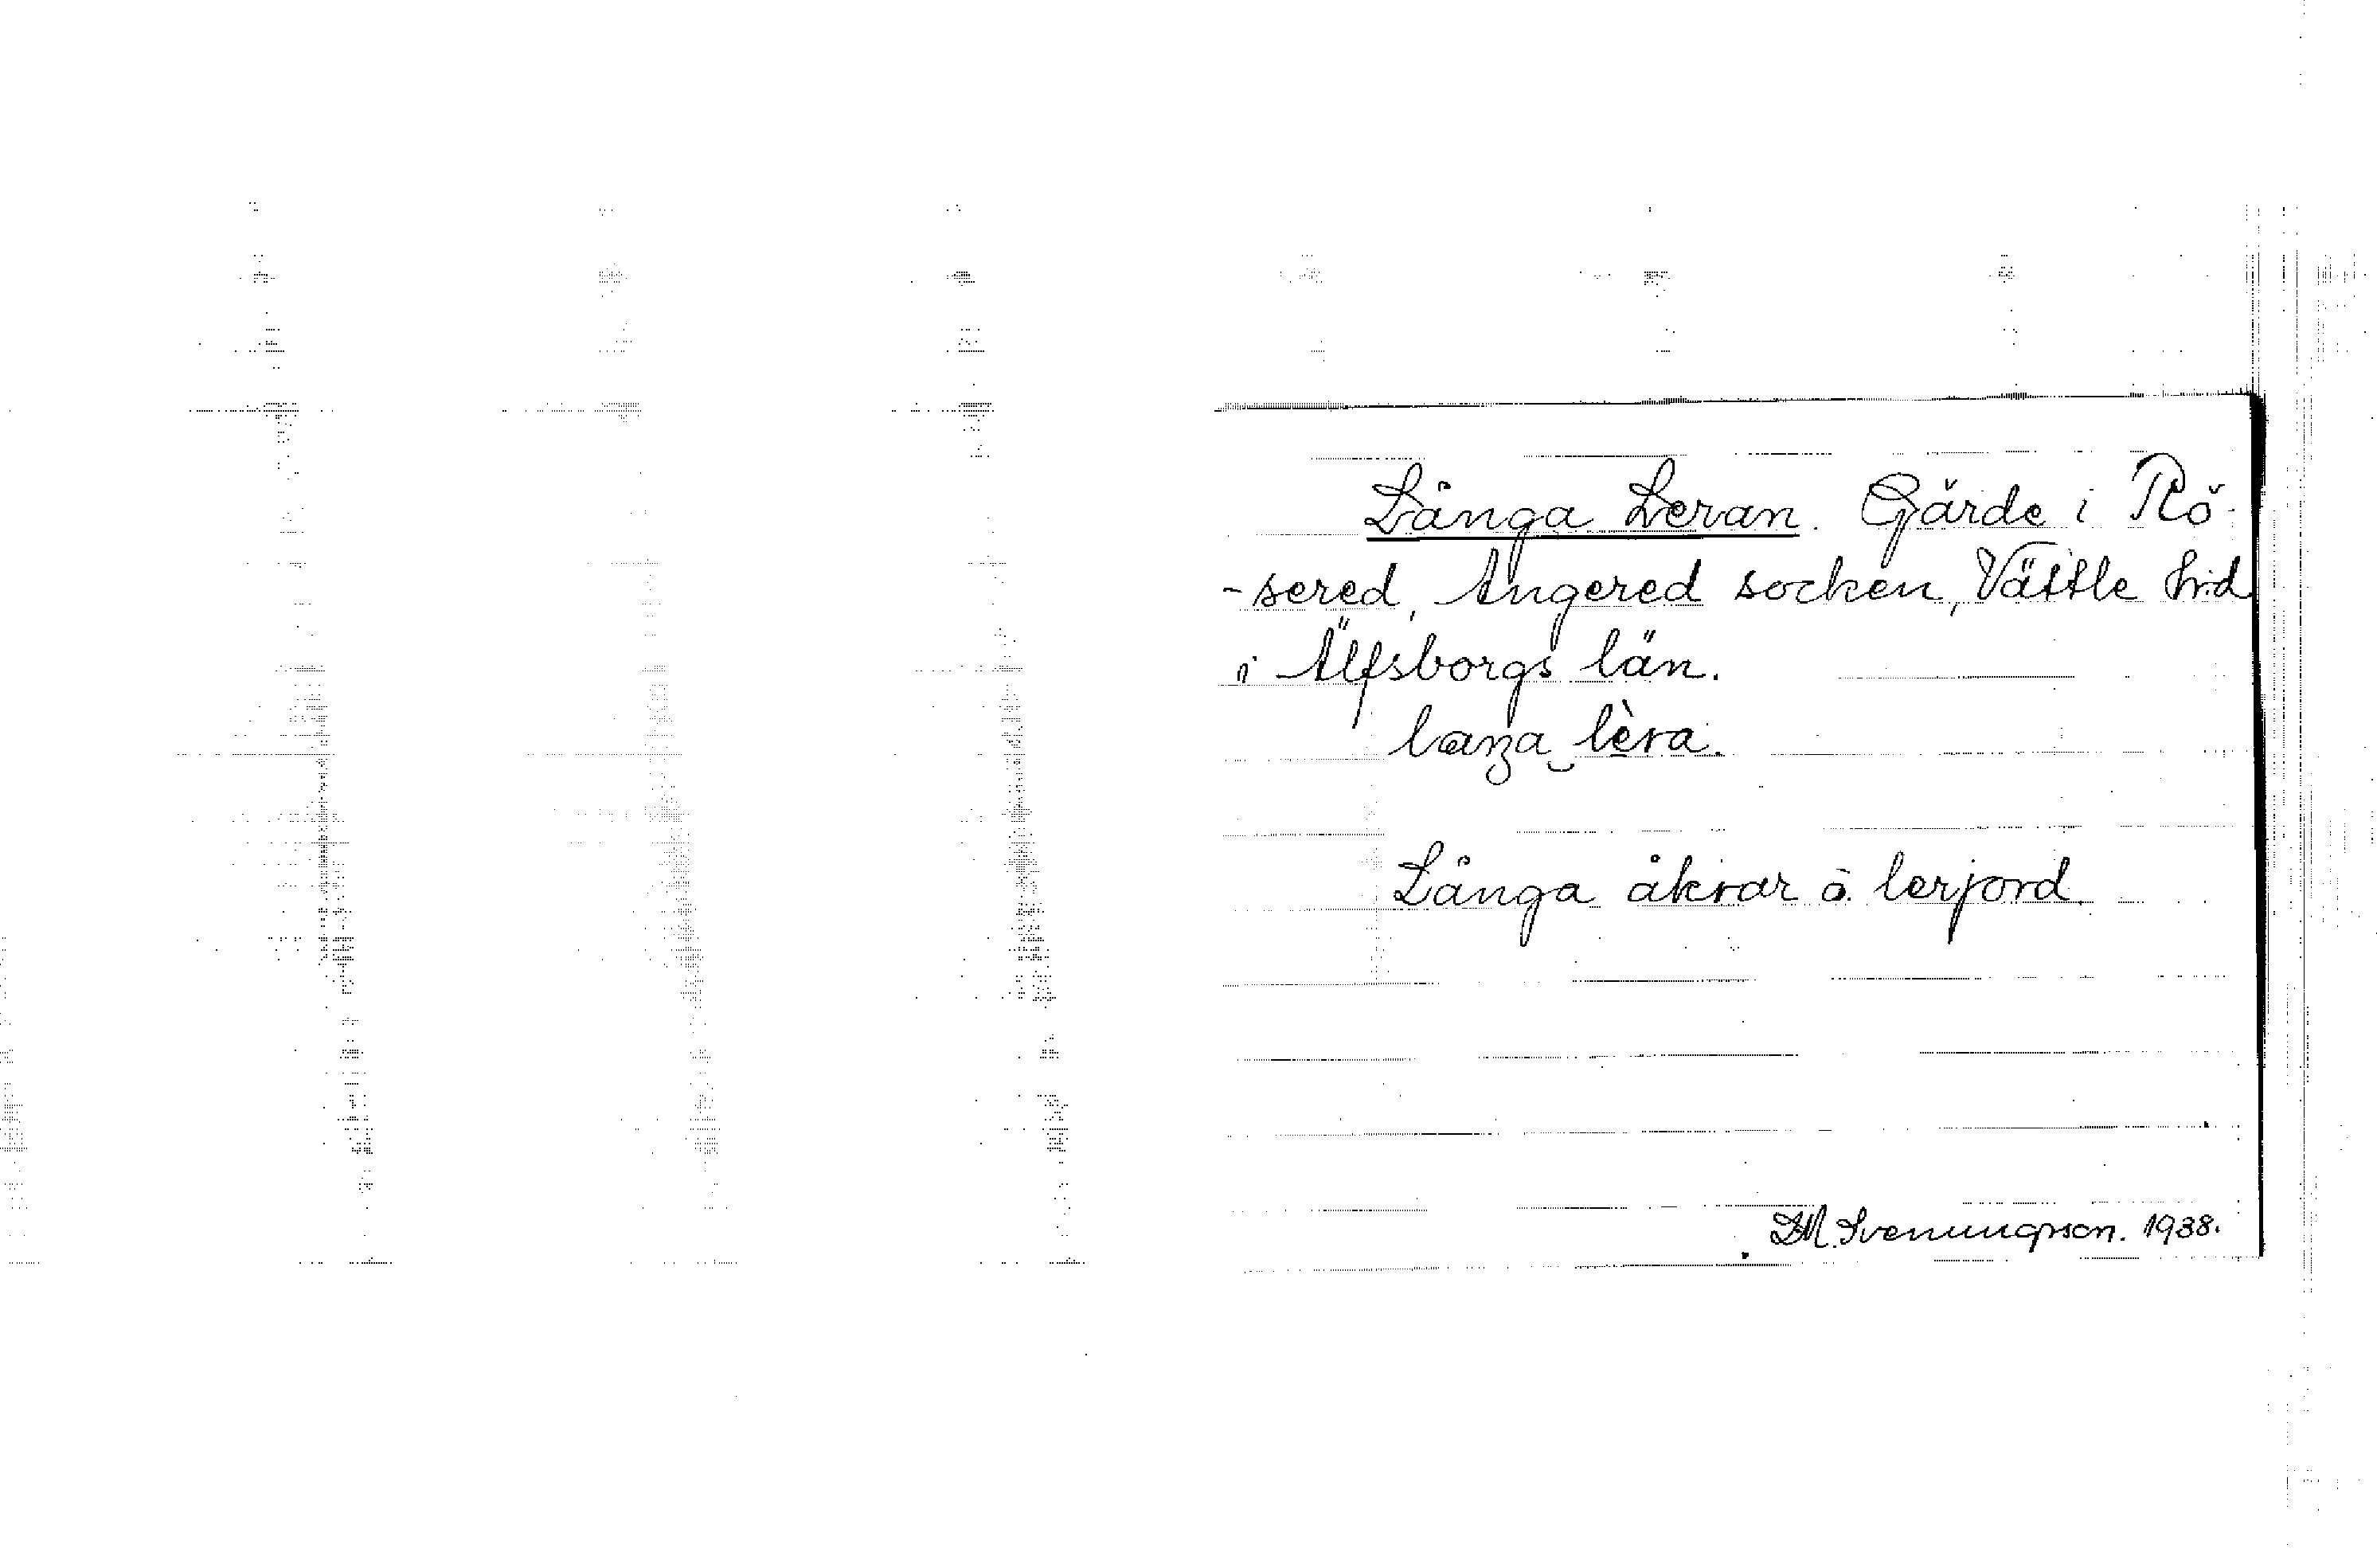 Långa Leran. Gärde i Rö-
-sered, Angered socken, Vättle hd
i Älfsborgs län.
laŋa lèra.
Långa åkrar å lerjord.
D.M. Svenungsson. 1938.